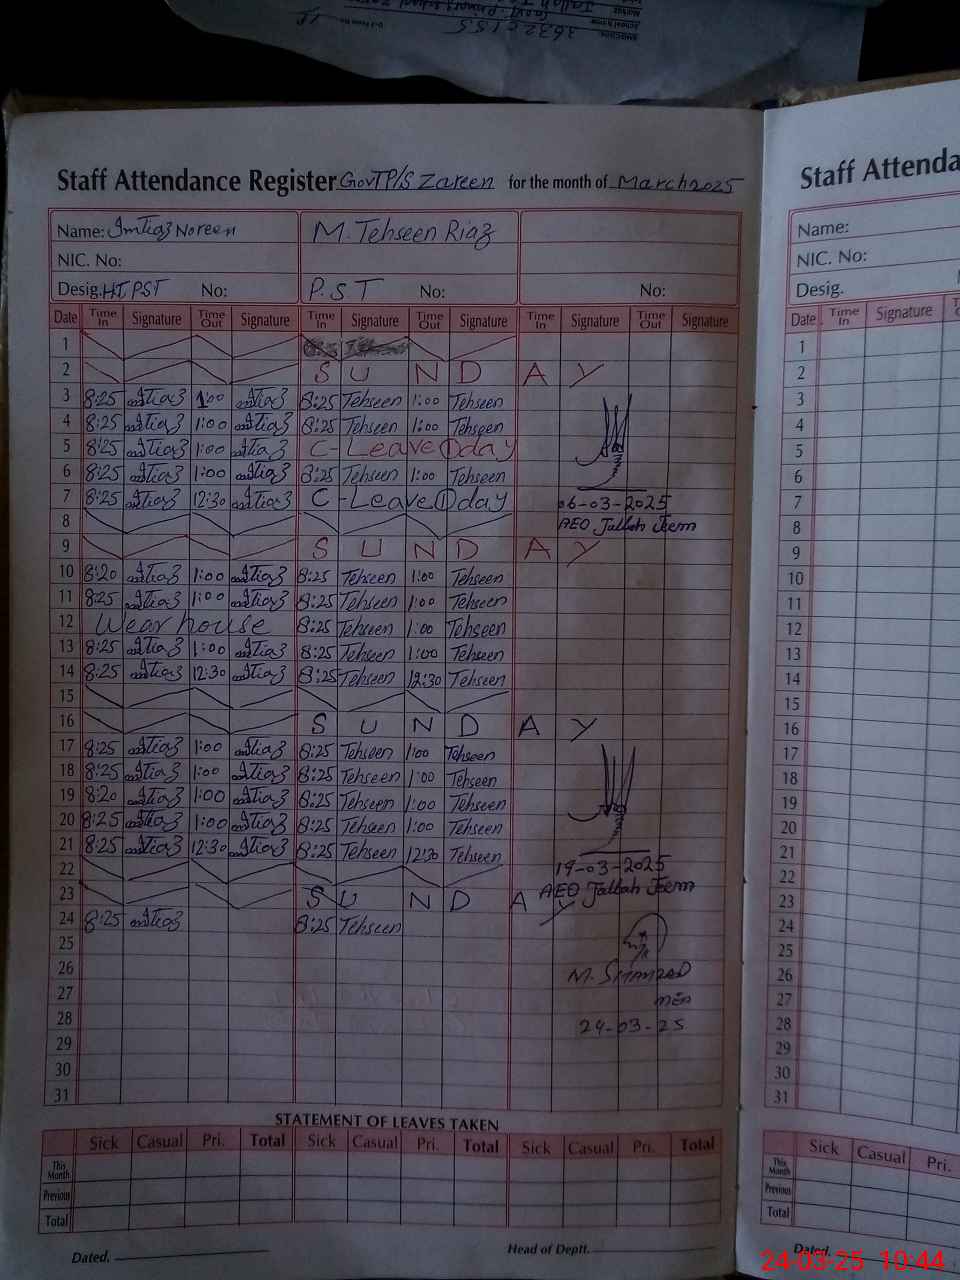 3632
Staff Attendance Register GovTP/S Zareen for the month of March2025
Name: ImTiaz Noreen M. Tehseen Riaz
NIC. No:
Desig. HT PST No: P.S.T No: No:
Date Time In Signature Time Out Signature Time In Signature Time Out Signature Time In Signature Time Out Signature
1
2 S U N D A Y
3 8:25 Imtiaz 1:00 Imtiaz 8:25 Tehseen 1:00 Tehseen
4 8:25 Imtiaz 1:00 Imtiaz 8:25 Tehseen 1:00 Tehseen
5 8:25 Imtiaz 1:00 Imtiaz C-Leave 1 day
6 8:25 Imtiaz 1:00 Imtiaz 8:25 Tehseen 1:00 Tehseen
7 8:25 Imtiaz 12:30 Imtiaz C-Leave 1 day 06-03-2025
8 AEO Jallah Jeem
9 S U N D A Y
10 8:20 Imtiaz 1:00 Imtiaz 8:25 Tehseen 1:00 Tehseen
11 8:25 Imtiaz 1:00 Imtiaz 8:25 Tehseen 1:00 Tehseen
12 Wear house 8:25 Tehseen 1:00 Tehseen
13 8:25 Imtiaz 1:00 Imtiaz 8:25 Tehseen 1:00 Tehseen
14 8:25 Imtiaz 12:30 Imtiaz 8:25 Tehseen 12:30 Tehseen
15
16 S U N D A Y
17 8:25 Imtiaz 1:00 Imtiaz 8:25 Tehseen 1:00 Tehseen
18 8:25 Imtiaz 1:00 Imtiaz 8:25 Tehseen 1:00 Tehseen
19 8:20 Imtiaz 1:00 Imtiaz 8:25 Tehseen 1:00 Tehseen
20 8:25 Imtiaz 1:00 Imtiaz 8:25 Tehseen 1:00 Tehseen
21 8:25 Imtiaz 12:30 Imtiaz 8:25 Tehseen 12:30 Tehseen
22 19-03-2025
AEO Jallah Jeem
23 S U N D A Y
24 8:25 Imtiaz 8:25 Tehseen
25
26 M. Shahzad
27 MEA
28 24-03-25
29
30
31
STATEMENT OF LEAVES TAKEN
Sick Casual Pri. Total Sick Casual Pri. Total Sick Casual Pri. Total
This Month
Previous
Total
Dated. Head of Deptt.
Staff Attenda
Name:
NIC. No:
Desig.
Date Time In Signature
1
2
3
4
5
6
7
8
9
10
11
12
13
14
15
16
17
18
19
20
21
22
23
24
25
26
27
28
29
30
31
Sick Casual Pri.
This Month
Previous
Total
Dated.
24-03-25 10:44